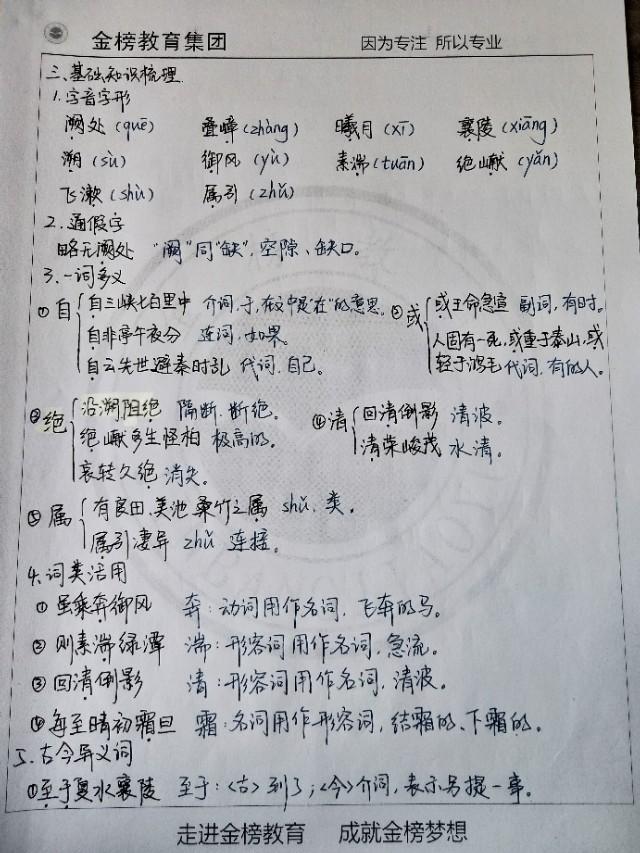 金榜教育集团 因为专注 所以专业
三、基础知识梳理
1.字音字形
阙处(quē) 叠嶂(zhàng) 曦月(xī) 襄陵(xiāng)
溯(sù) 御风(yù) 素湍(tuān) 绝巘(yǎn)
飞漱(shù) 属引(zhǔ)
2.通假字
略无阙处 "阙"同"缺",空隙、缺口。
3.一词多义
①自 自三峡七百里中 介词,于,在文中是"在"的意思。
自非亭午夜分 连词,如果。
自云先世避秦时乱 代词,自己。
②或 或王命急宣 副词,有时。
人固有一死,或重于泰山,或
轻于鸿毛 代词,有的人。
③绝 沿溯阻绝 隔断,断绝。
绝巘多生怪柏 极高的。
哀转久绝 消失。
④清 回清倒影 清波。
清荣峻茂 水清。
⑤属 有良田、美池桑竹之属 shǔ,类。
属引凄异 zhǔ 连接。
4.词类活用
①虽乘奔御风 奔:动词用作名词,飞奔的马。
②则素湍绿潭 湍:形容词用作名词,急流。
③回清倒影 清:形容词用作名词,清波。
④每至晴初霜旦 霜:名词用作形容词,结霜的、下霜的。
5.古今异义词
①至于夏水襄陵 至于:<古>到了;<今>介词,表示另提一事。
走进金榜教育 成就金榜梦想